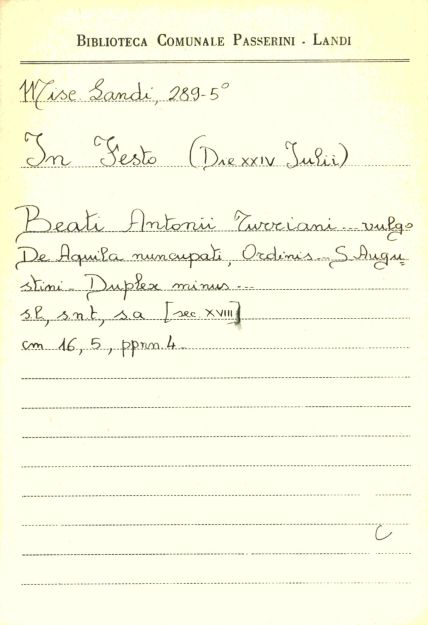 BIBLIOTECA COMUNALE PASSERINI - LANDI
Misc Landi, 289-5°
In Festo (Die XXIV Julii)
Beati Antonii Turriani... vulgo
De Aquila nuncupati, Ordinis... S. Augu=
stini. Duplex minus...
s.l, s.n.t, s.a [sec XVIII]
cm 16,5, pp.nn.4.
C